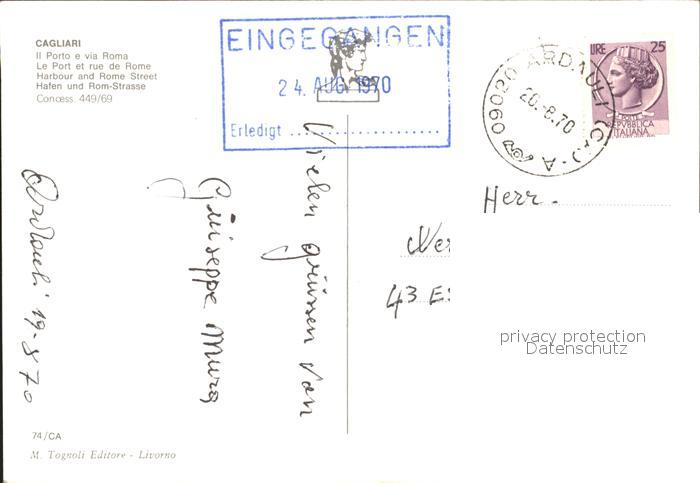 CAGLIARI
Il Porto e via Roma
Le Port et rue de Rome
Harbour and Rome Street
Hafen und Rom-Strasse
Concess 449/69
EINGEGANGEN
24. AUG. 1970
Erledigt
09020 ARDAULI (CA)-A
20.-8.70
LIRE 25
REPVBBLICA
ITALIANA
Vielen grüssen von
Giuseppe Murg
Ardauli 19-8 70
Herr.
43 Es
privacy protection
Datenschutz
74/CA
M. Tognoli Editore - Livorno